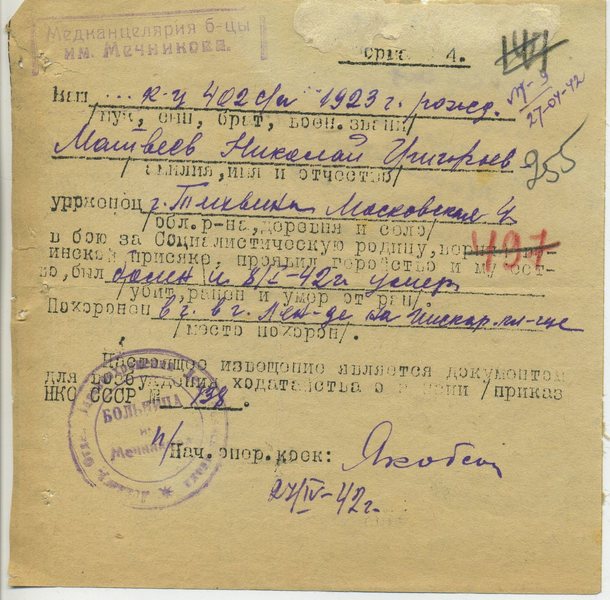 Медканцелярия б-цы
им. Мечникова.
4.
Ваш ... к-ц 402 с/п 1923 г. рожд.
/муж, сын, брат, воен. звани/
27-04-42
Матвеев Николай Григорьев
/амилия, имя и отчество/
255
урженец г. Тихвина Московская 4
/обл. р-на, деревня и село/
в бою за Социалистическую родину,
497
инской присяге, проявил геройство и му ест-
во, был болен и 8/I-42 г умер
/убит, ранен и умер от ран/.
Похоронен в г. в г. Лен-де на Пискар. кл-ще
/место похорон/.
Настоящее извещение является документом
для возбуждения ходатайства о п нсии /приказ
НКО СССР № 138.
БОЛЬНИЦА
им
Мечникова
п/Нач. опер. коек: Якобсон
24/IV-42 г.